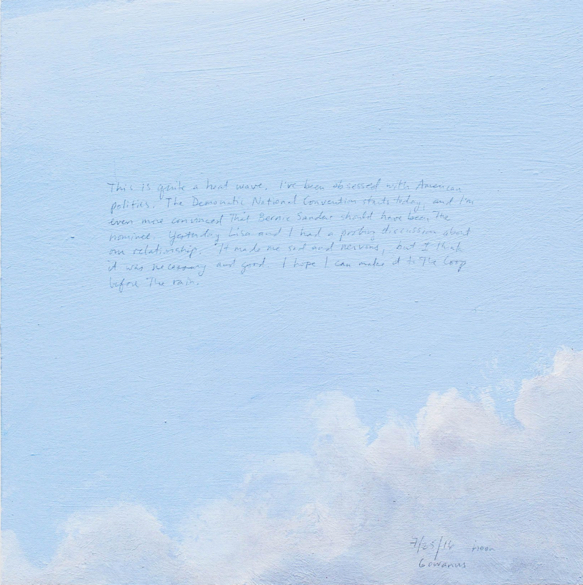 This is quite a heat wave. I've been obsessed with American
politics. The Democratic National Convention starts today, and I'm
even more convinced that Bernie Sanders should have been the
nominee. Yesterday Lisa and I had a probing discussion about
our relationship. It made me sad and nervous, but I think
it was necessary and good. I hope I can make it to the Coop
before the rain.
7/25/16 noon
Gowanus